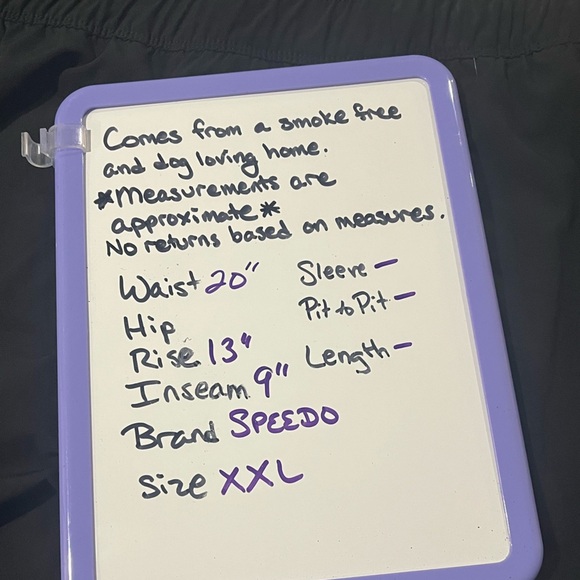 Comes from a smoke free
and dog loving home.
*Measurements are
approximate*
No returns based on measures.
Waist 20"
Hip
Rise 13"
Inseam 9"
Brand SPEEDO
Size XXL
Sleeve -
Pit to Pit -
Length -